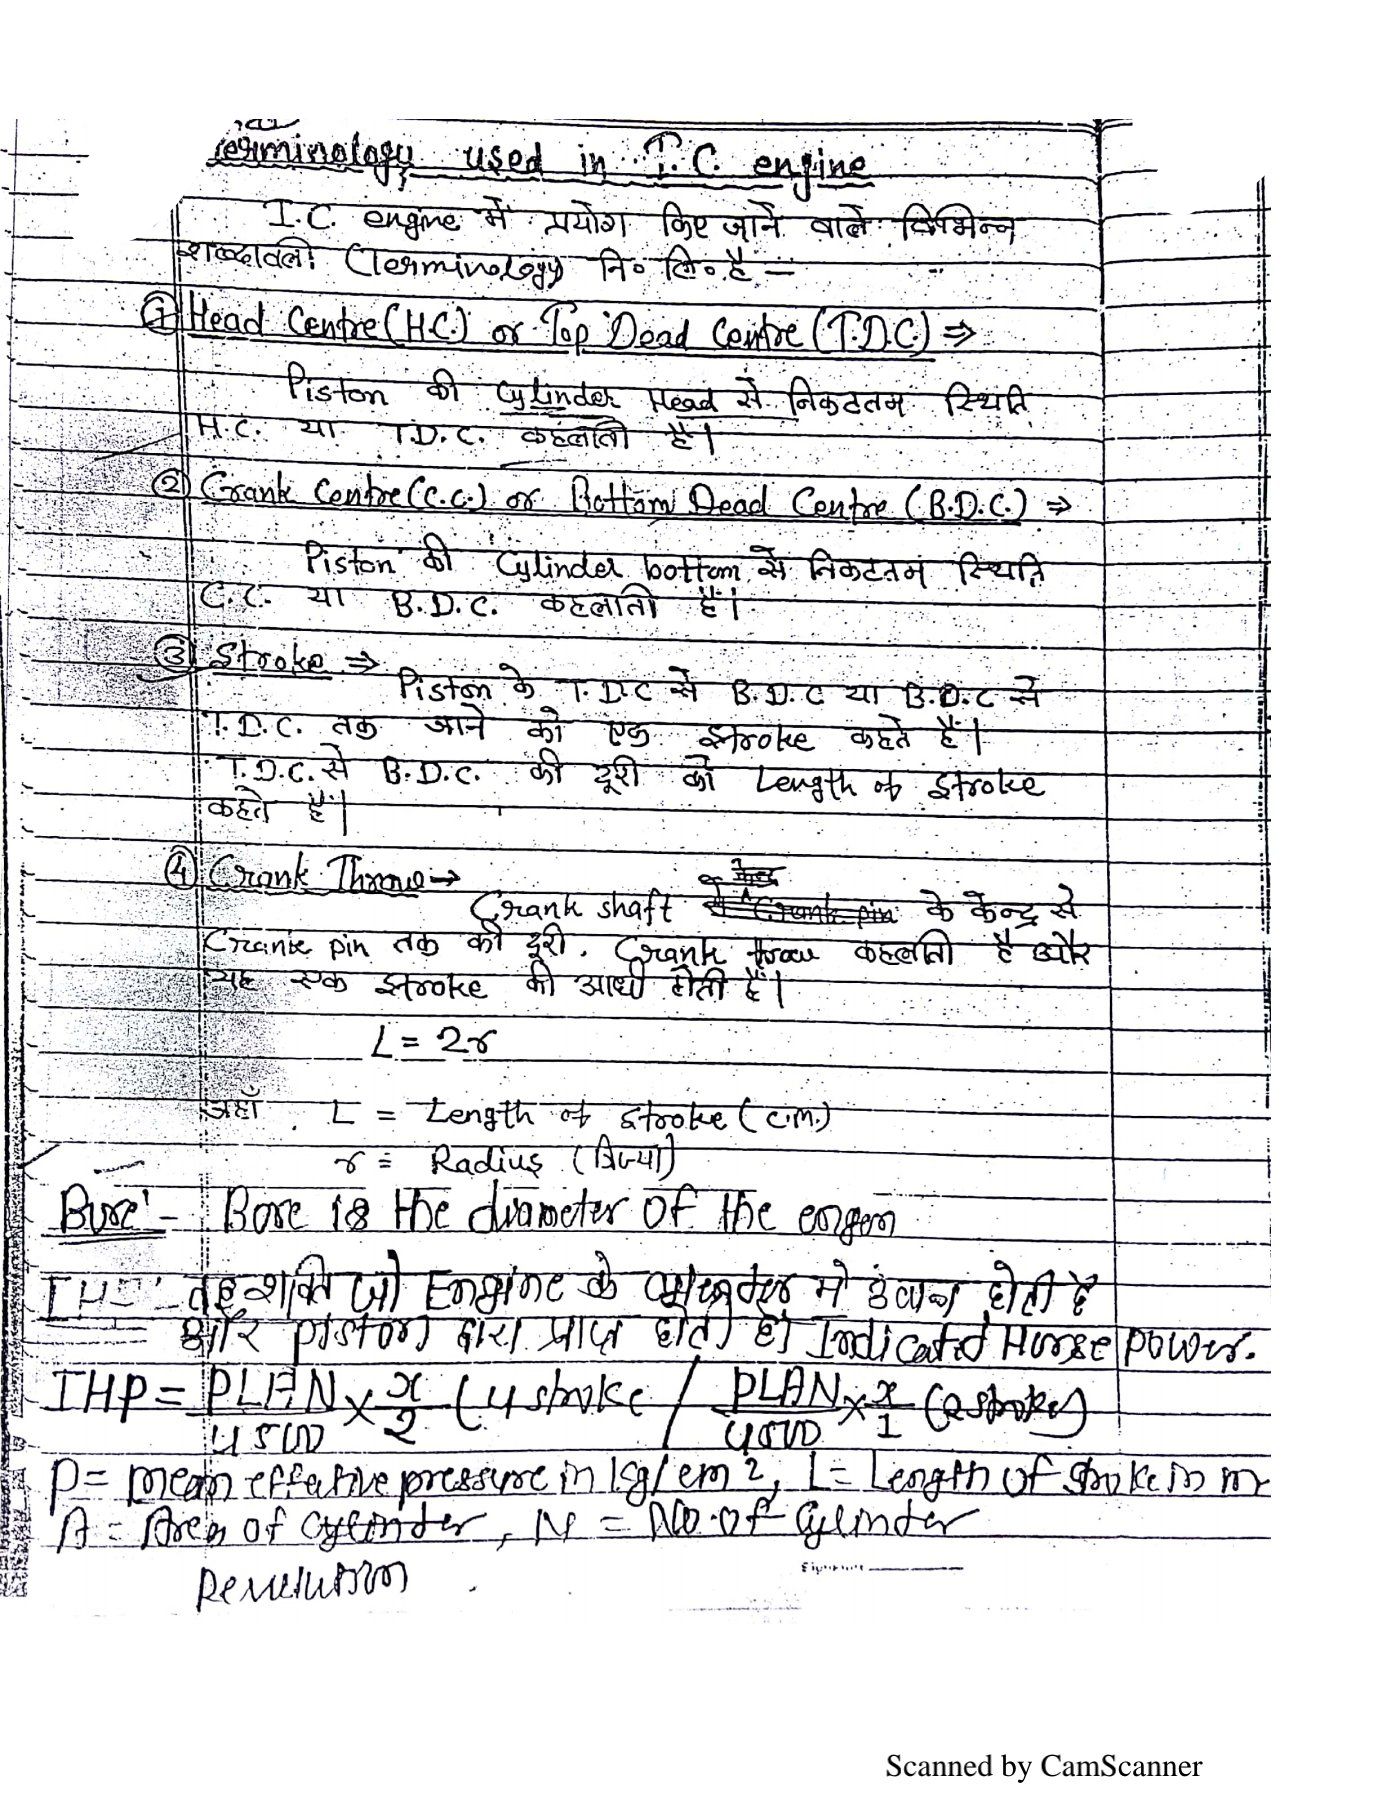 Terminology used in I.C. engine
I.C. engine में प्रयोग किए जाने वाले विभिन्न
शब्दावली (Terminology नि॰ लि॰ है –
① Head Centre (H.C.) or Top Dead Centre (T.D.C.) ⇒
Piston की Cylinder Head से निकटतम स्थिति
H.C. या T.D.C. कहलाती है।
② Crank Centre (C.C.) or Bottom Dead Centre (B.D.C.) ⇒
Piston की Cylinder bottom से निकटतम स्थिति
C.C. या B.D.C. कहलाती हैं।
③ Stroke ⇒
Piston के T.D.C से B.D.C या B.D.C से
T.D.C. तक जाने को एक stroke कहते हैं।
T.D.C. से B.D.C. की दूरी को Length of stroke
कहते हैं।
④ Crank Throw →
Crank shaft के केन्द्र से
Crank pin तक की दूरी. Crank trow कहलाती है और
यह एक stroke की आधी होती है।
L = 2r
जहाँ L = Length of stroke (c.m.)
r = Radius (त्रिज्या)
Bore :- Bore is the diameter of the engen
IH- वह शक्ति जो Engine के cylender मे उत्पन्न होती है
और piston द्वारा प्राप्त होती हो Indicated Horse power.
IHP = PLAN/4500 × x/2 (4 stroke / PLAN/4500 × x/1 (2 stroke)
P = mean effetive pressure in kg/cm2, L = Length of stroke in m
A = Area of cylinder, N = No. of cylinder
Revolution
Signature
Scanned by CamScanner